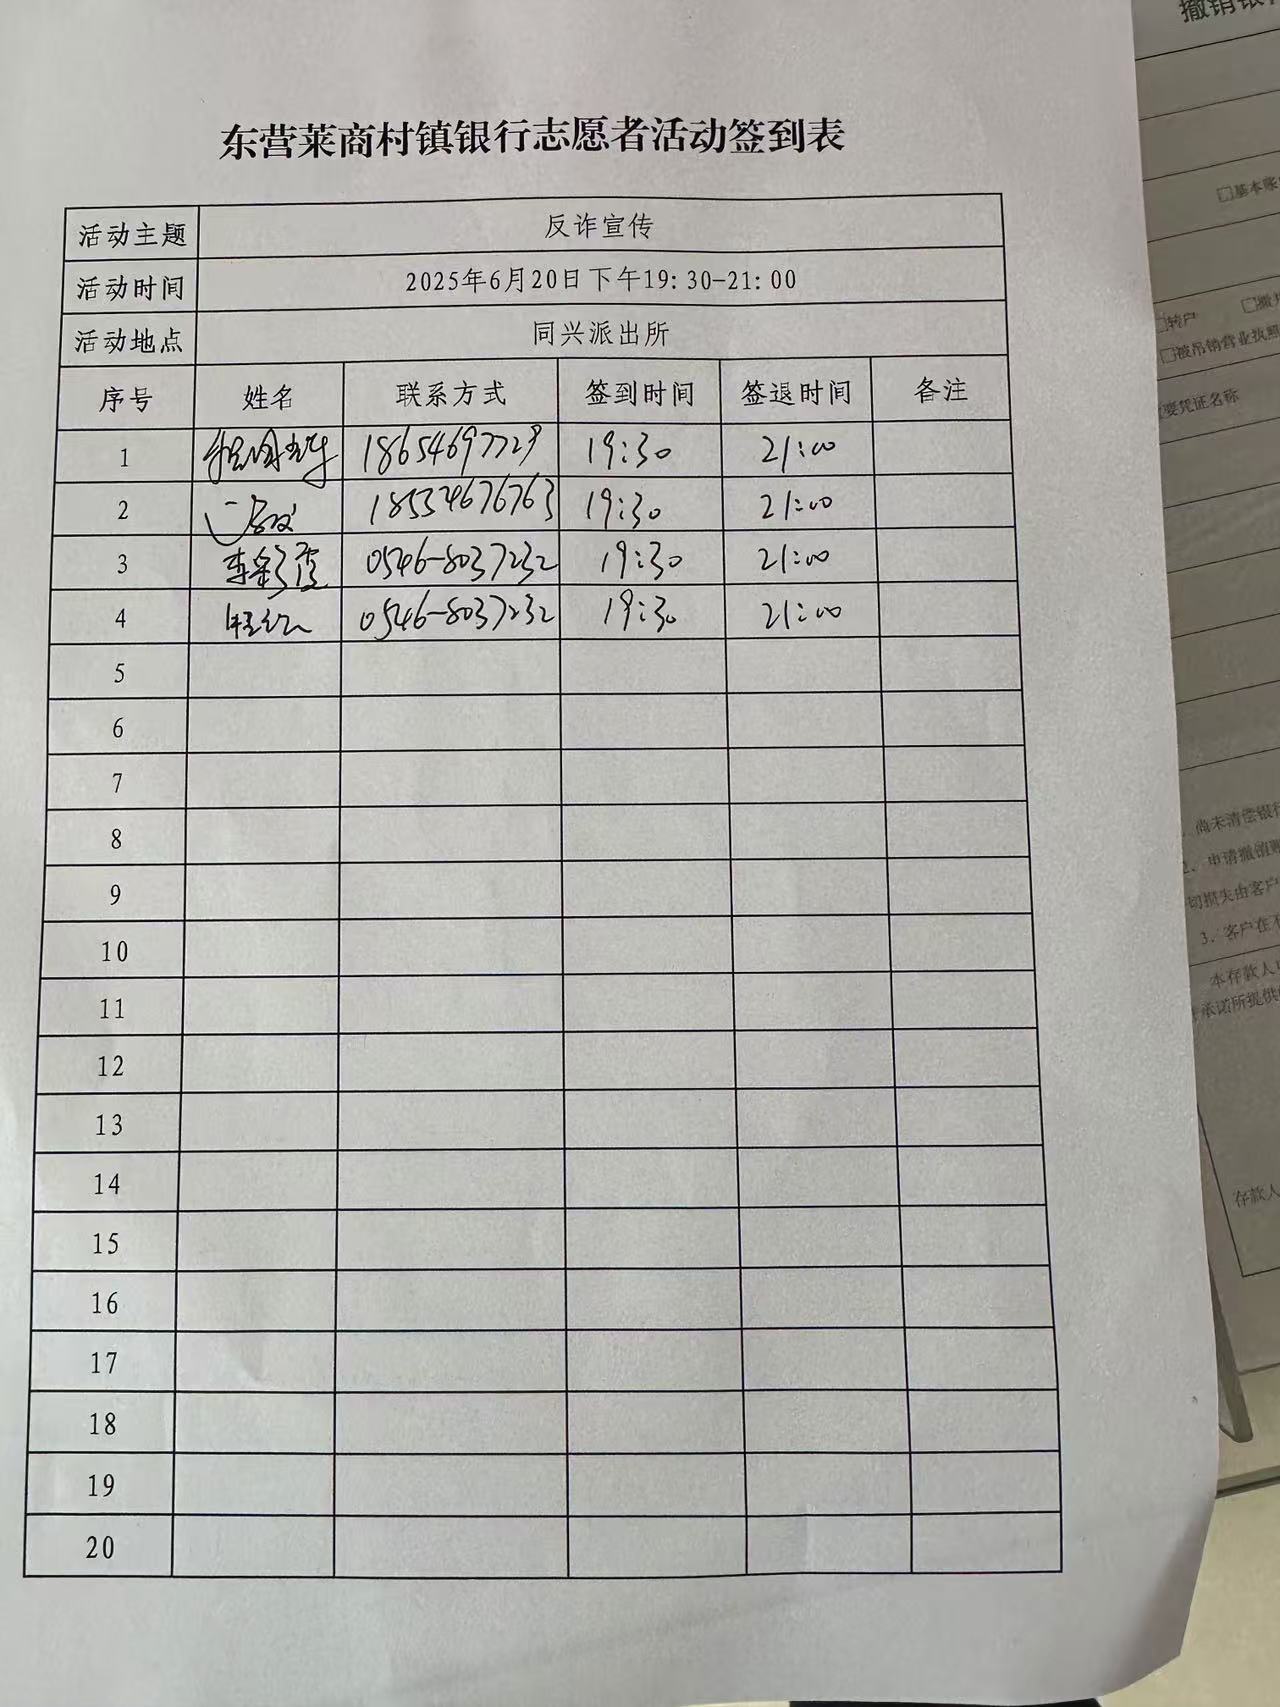 东营莱商村镇银行志愿者活动签到表
活动主题 反诈宣传
活动时间 2025年6月20日下午19:30-21:00
活动地点 同兴派出所
序号 姓名 联系方式 签到时间 签退时间 备注
1 18654697729 19:30 21:00
2 18534676763 19:30 21:00
3 0546-8037232 19:30 21:00
4 0546-8037232 19:30 21:00
5
6
7
8
9
10
11
12
13
14
15
16
17
18
19
20
撤销银
□基本账
□转户 □撤
□被吊销营业执照
要凭证名称
尚未清偿银行
2、申请撤销
切损失由客户
3、客户在
本存款人
承诺所提供
存款人